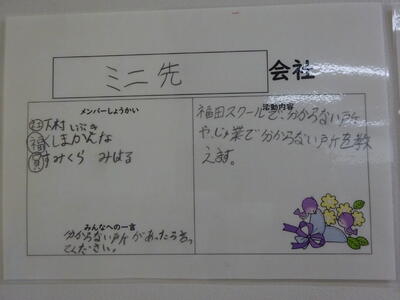 ミニ先 会社
メンバーしょうかい
社 下村 いぶき
福 くしまかんな
員 すみくら みはる
みんなへの一言
分からない所があったら言っ
てください。
活動内容
福田スクールで、分からない所
や、じゅ業で分からない所を教
えます。